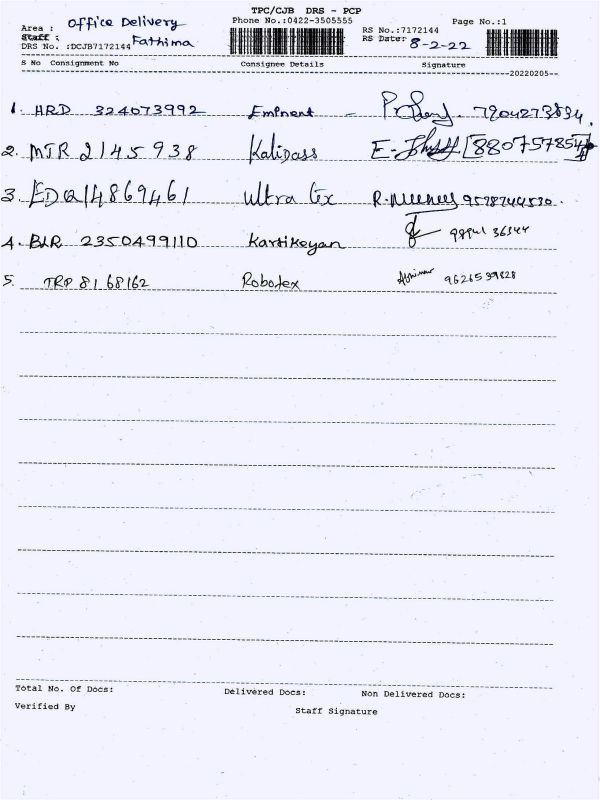 TPC/CJB DRS - PCP
Area : Office Delivery Phone No.:0422-3505555 Page No.:1
Staff : Fathima RS No.:7172144
DRS No. :DCJB7172144 RS Date: 8-2-22
S No Consignment No Consignee Details Signature
20220205
1. HRD 324073992 Eminent - 7904273834.
2. MTR 2145938 Kalidass E. [8807578547]
3. EDQ14869461 Ultra tex R. 9578744530.
4. BLR 2350499110 Kartikeyan 36344
5. TRP 8168162 Robotex 9626599828
Total No. Of Docs: Delivered Docs: Non Delivered Docs:
Verified By Staff Signature